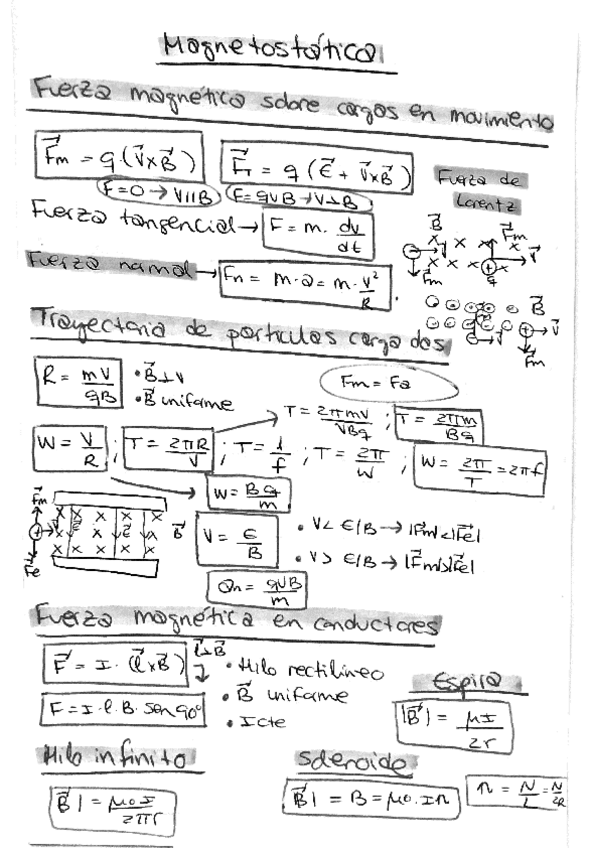 Magnetostática
Fuerza magnética sobre cargas en movimiento
F⃗m = q·(V⃗xB⃗)   F⃗т = q(E⃗ + V⃗xB⃗)   Fuerza de
F=0 → V||B   F=qVB→V⊥B   Lorentz
Fuerza tangencial → F = m· dv/dt
Fuerza normal → Fn = m·a = m· V²/R
B⃗ F⃗m V⃗ q F⃗m
B⃗ V⃗ F⃗m
Trayectoria de partículas cargadas
R = mV/qB   • B⃗⊥V   Fm = Fe
• B⃗ uniforme
T = 2πmV/VBq ; T = 2πm/Bq
W = V/R ; T = 2πR/V ; T = 1/f ; T = 2π/W ; W = 2π/T = 2πf
W = Bq/m
F⃗m V⃗ E⃗ E⃗ B⃗ F⃗e
V = E/B   • V< E/B → |F⃗m|<|F⃗e|
• V> E/B → |F⃗m|>|F⃗e|
an = qVB/m
Fuerza magnética en conductores
F⃗ = I·(l⃗xB⃗)   l⊥B⃗   • Hilo rectilíneo
F = I·l·B·sen90°   • B⃗ uniforme
• I cte
Espira
|B⃗| = μI/2r
Hilo infinito   Solenoide
|B⃗| = μ₀I/2πr   |B⃗| = B = μ₀·In   n = N/L = N/2R